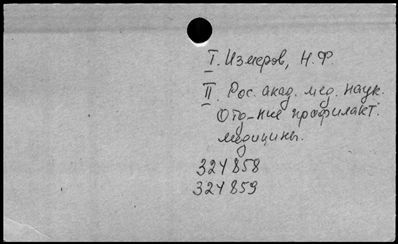 I. Измеров, Н.Ф
II. Рос. акад. мед. наук.
Отд-ние профилакт.
медицины.
324858
324859